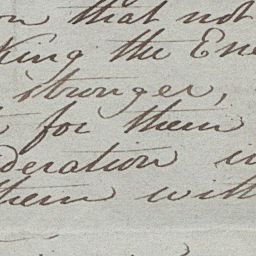 on that not
king the Ene
stronger,
for them
deration
them with